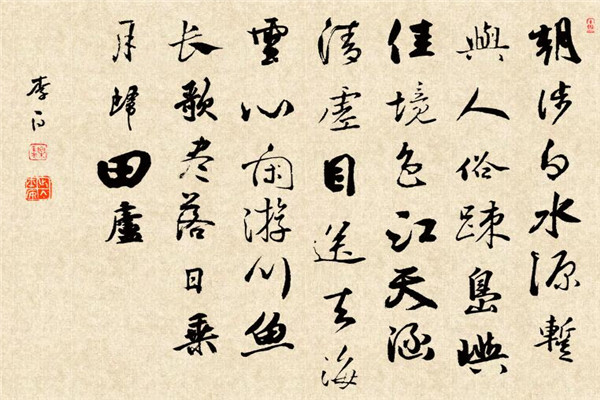 朝涉白水源暫
與人俗踈島嶼
佳境色江天涵
清虛目送去海
雲心閑游川魚
长歌尽落日乘
月歸田廬
李白